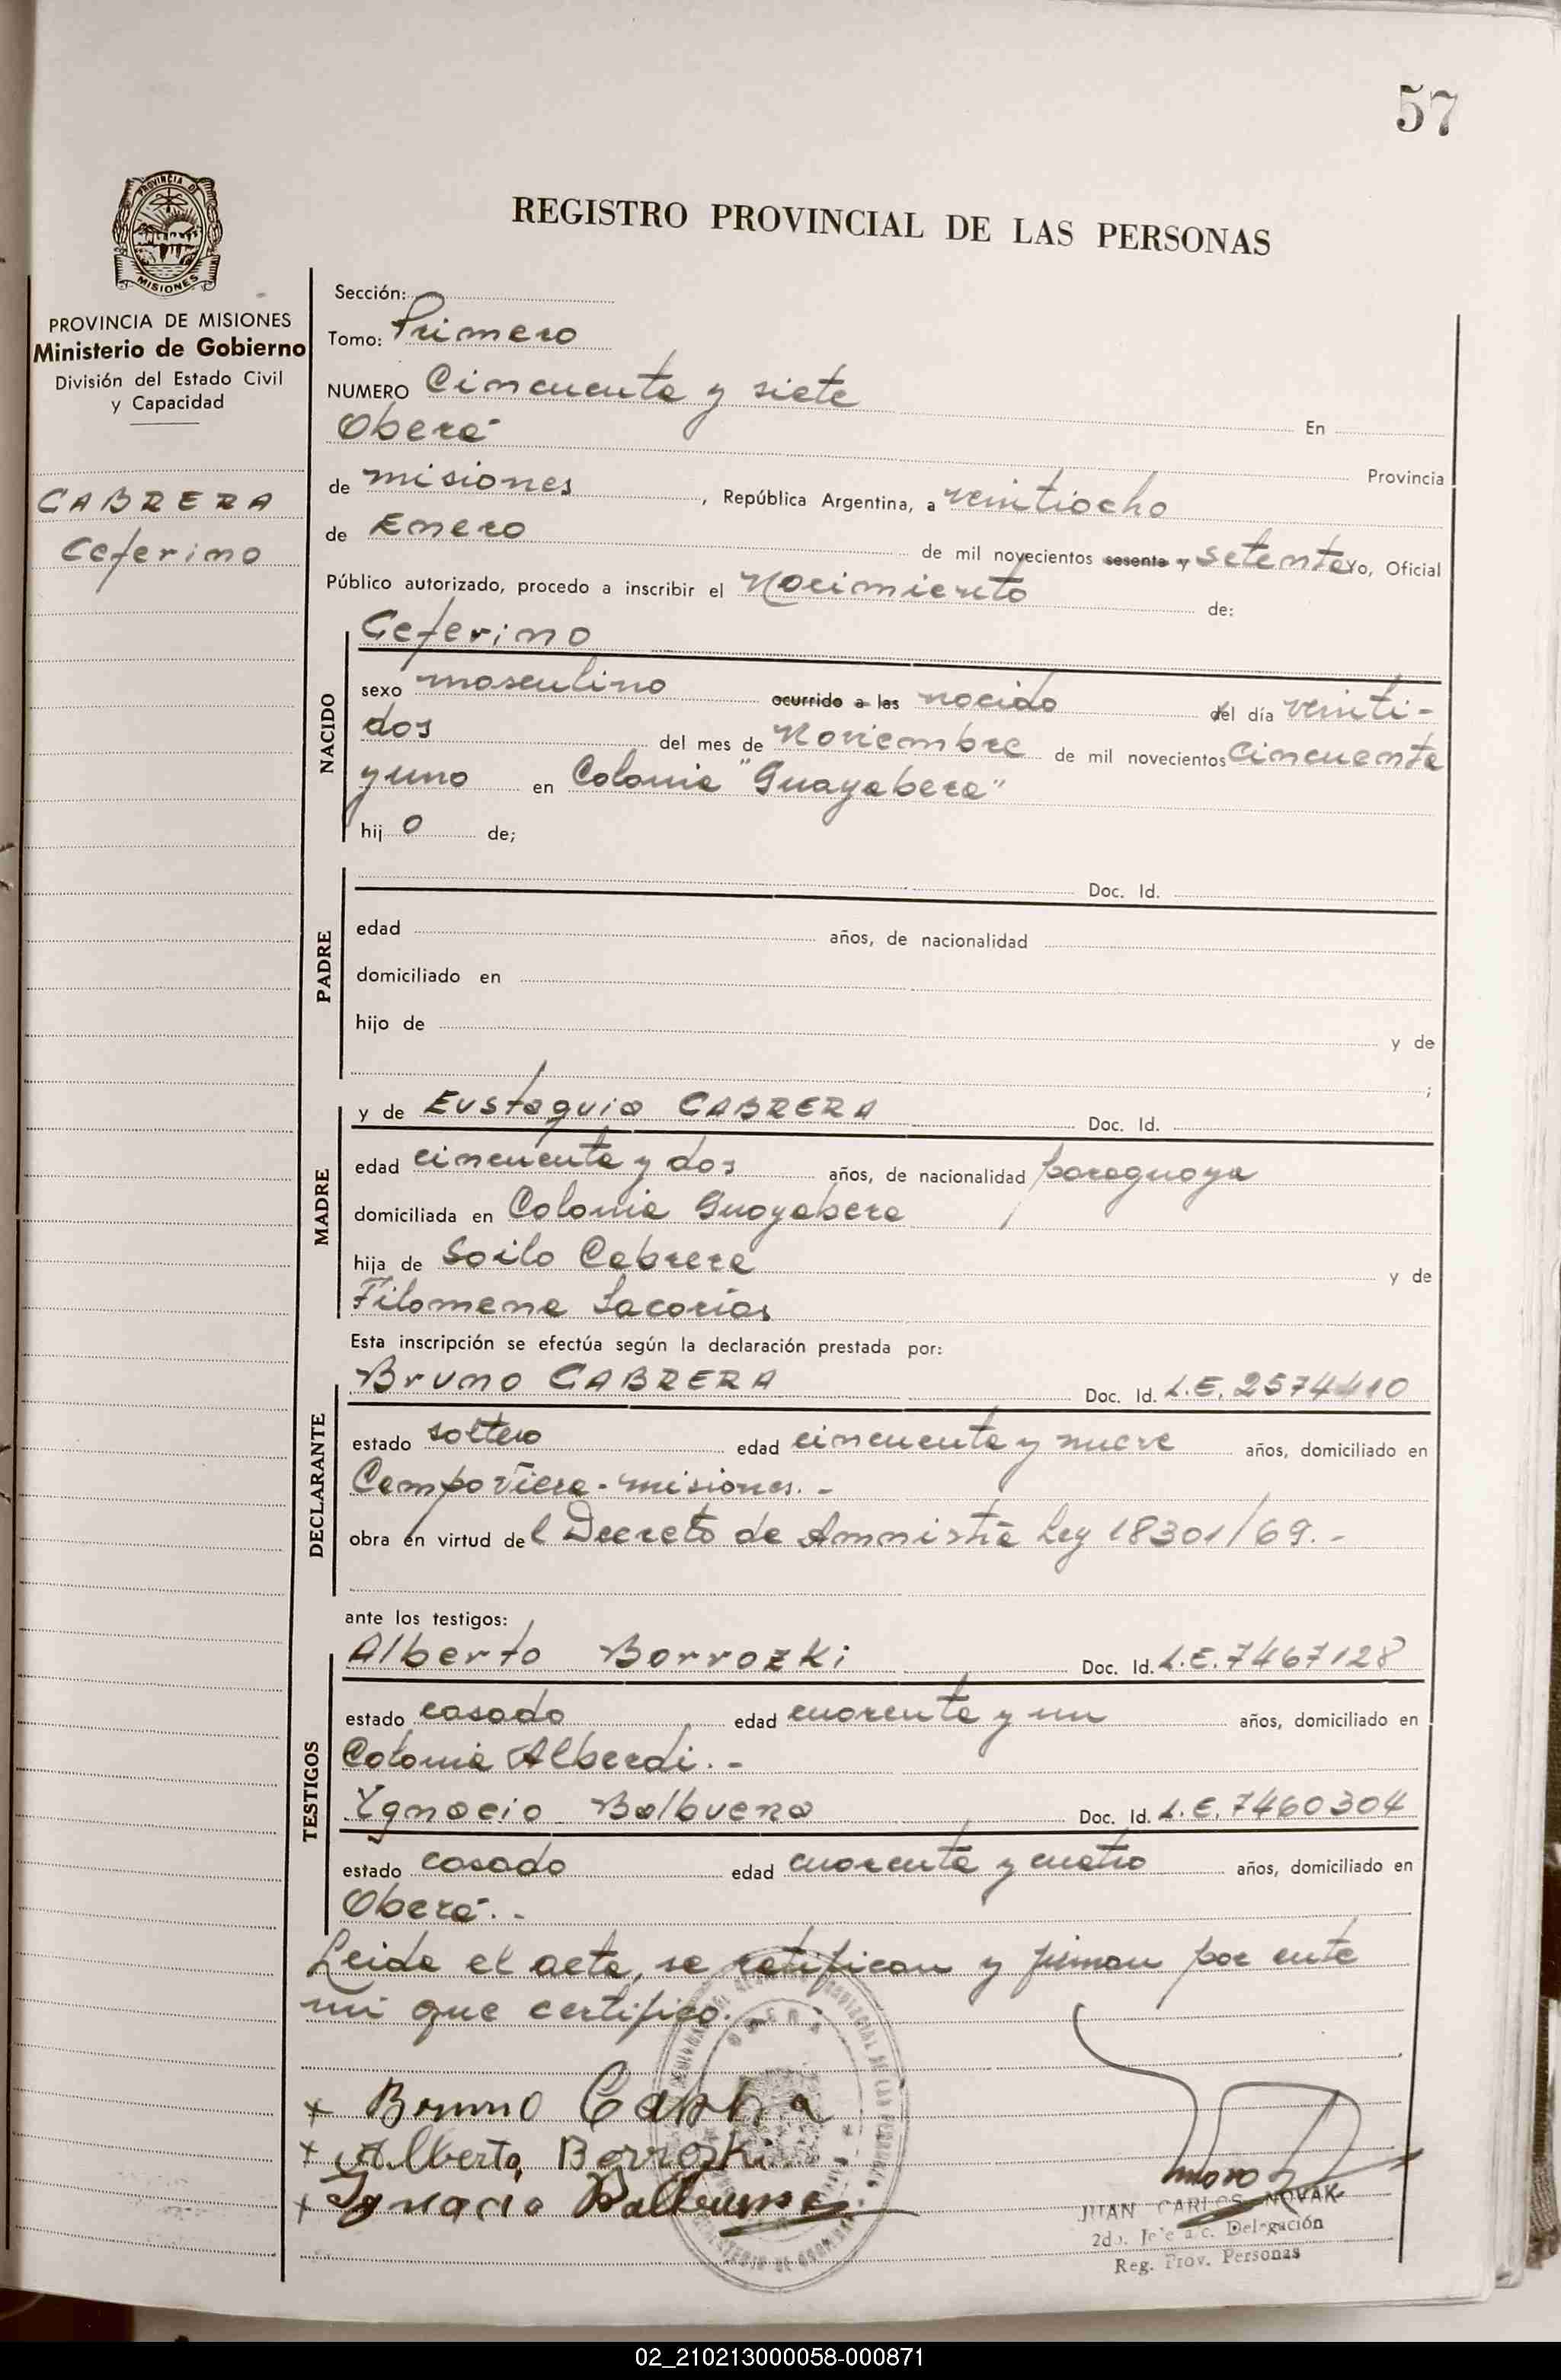 57
REGISTRO PROVINCIAL DE LAS PERSONAS
PROVINCIA DE MISIONES
PROVINCIA DE MISIONES
Ministerio de Gobierno
División del Estado Civil
y Capacidad
CABRERA
Ceferino
Sección:
Tomo: Primero
NUMERO Cincuenta y siete En
Oberá Provincia
de misiones, República Argentina, a veintiocho
de Enero de mil novecientos sesenta y setenta yo, Oficial
Público autorizado, procedo a inscribir el Nacimiento de:
NACIDO
Ceferino
sexo masculino ocurrido a las nacido del día veinti-
dos del mes de Noviembre de mil novecientos cincuenta
y uno en Colonia "Guayabera"
hijo de;
PADRE
Doc. Id.
edad años, de nacionalidad
domiciliado en
hijo de y de
;
MADRE
y de Eustaquia CABRERA Doc. Id.
edad cincuenta y dos años, de nacionalidad paraguaya
domiciliada en Colonia Guayabera
hija de Soilo Cabrera y de
Filomena Sacarías
Esta inscripción se efectúa según la declaración prestada por:
DECLARANTE
Bruno CABRERA Doc. Id. L.E. 2574410
estado soltero edad cincuenta y nueve años, domiciliado en
Campo Viera - misiones. -
obra en virtud del Decreto de Amnistía Ley 18301/69.-
ante los testigos:
TESTIGOS
Alberto Borrozki Doc. Id. L.E. 7467128
estado casado edad cuarenta y un años, domiciliado en
Colonia Alberdi. -
Ygnacio Balbuena Doc. Id. L.E. 7460304
estado casado edad cuarenta y cuatro años, domiciliado en
Oberá. -
Leida el acta, se ratifican y firman por ante
mi que certifico. -
x Bruno
x Alberto Borrozki
x Ignacio
JUAN CARLOS NOVAK
2do. Jefe a/c. Delegación
Reg. Prov. Personas
02_210213000058-000871